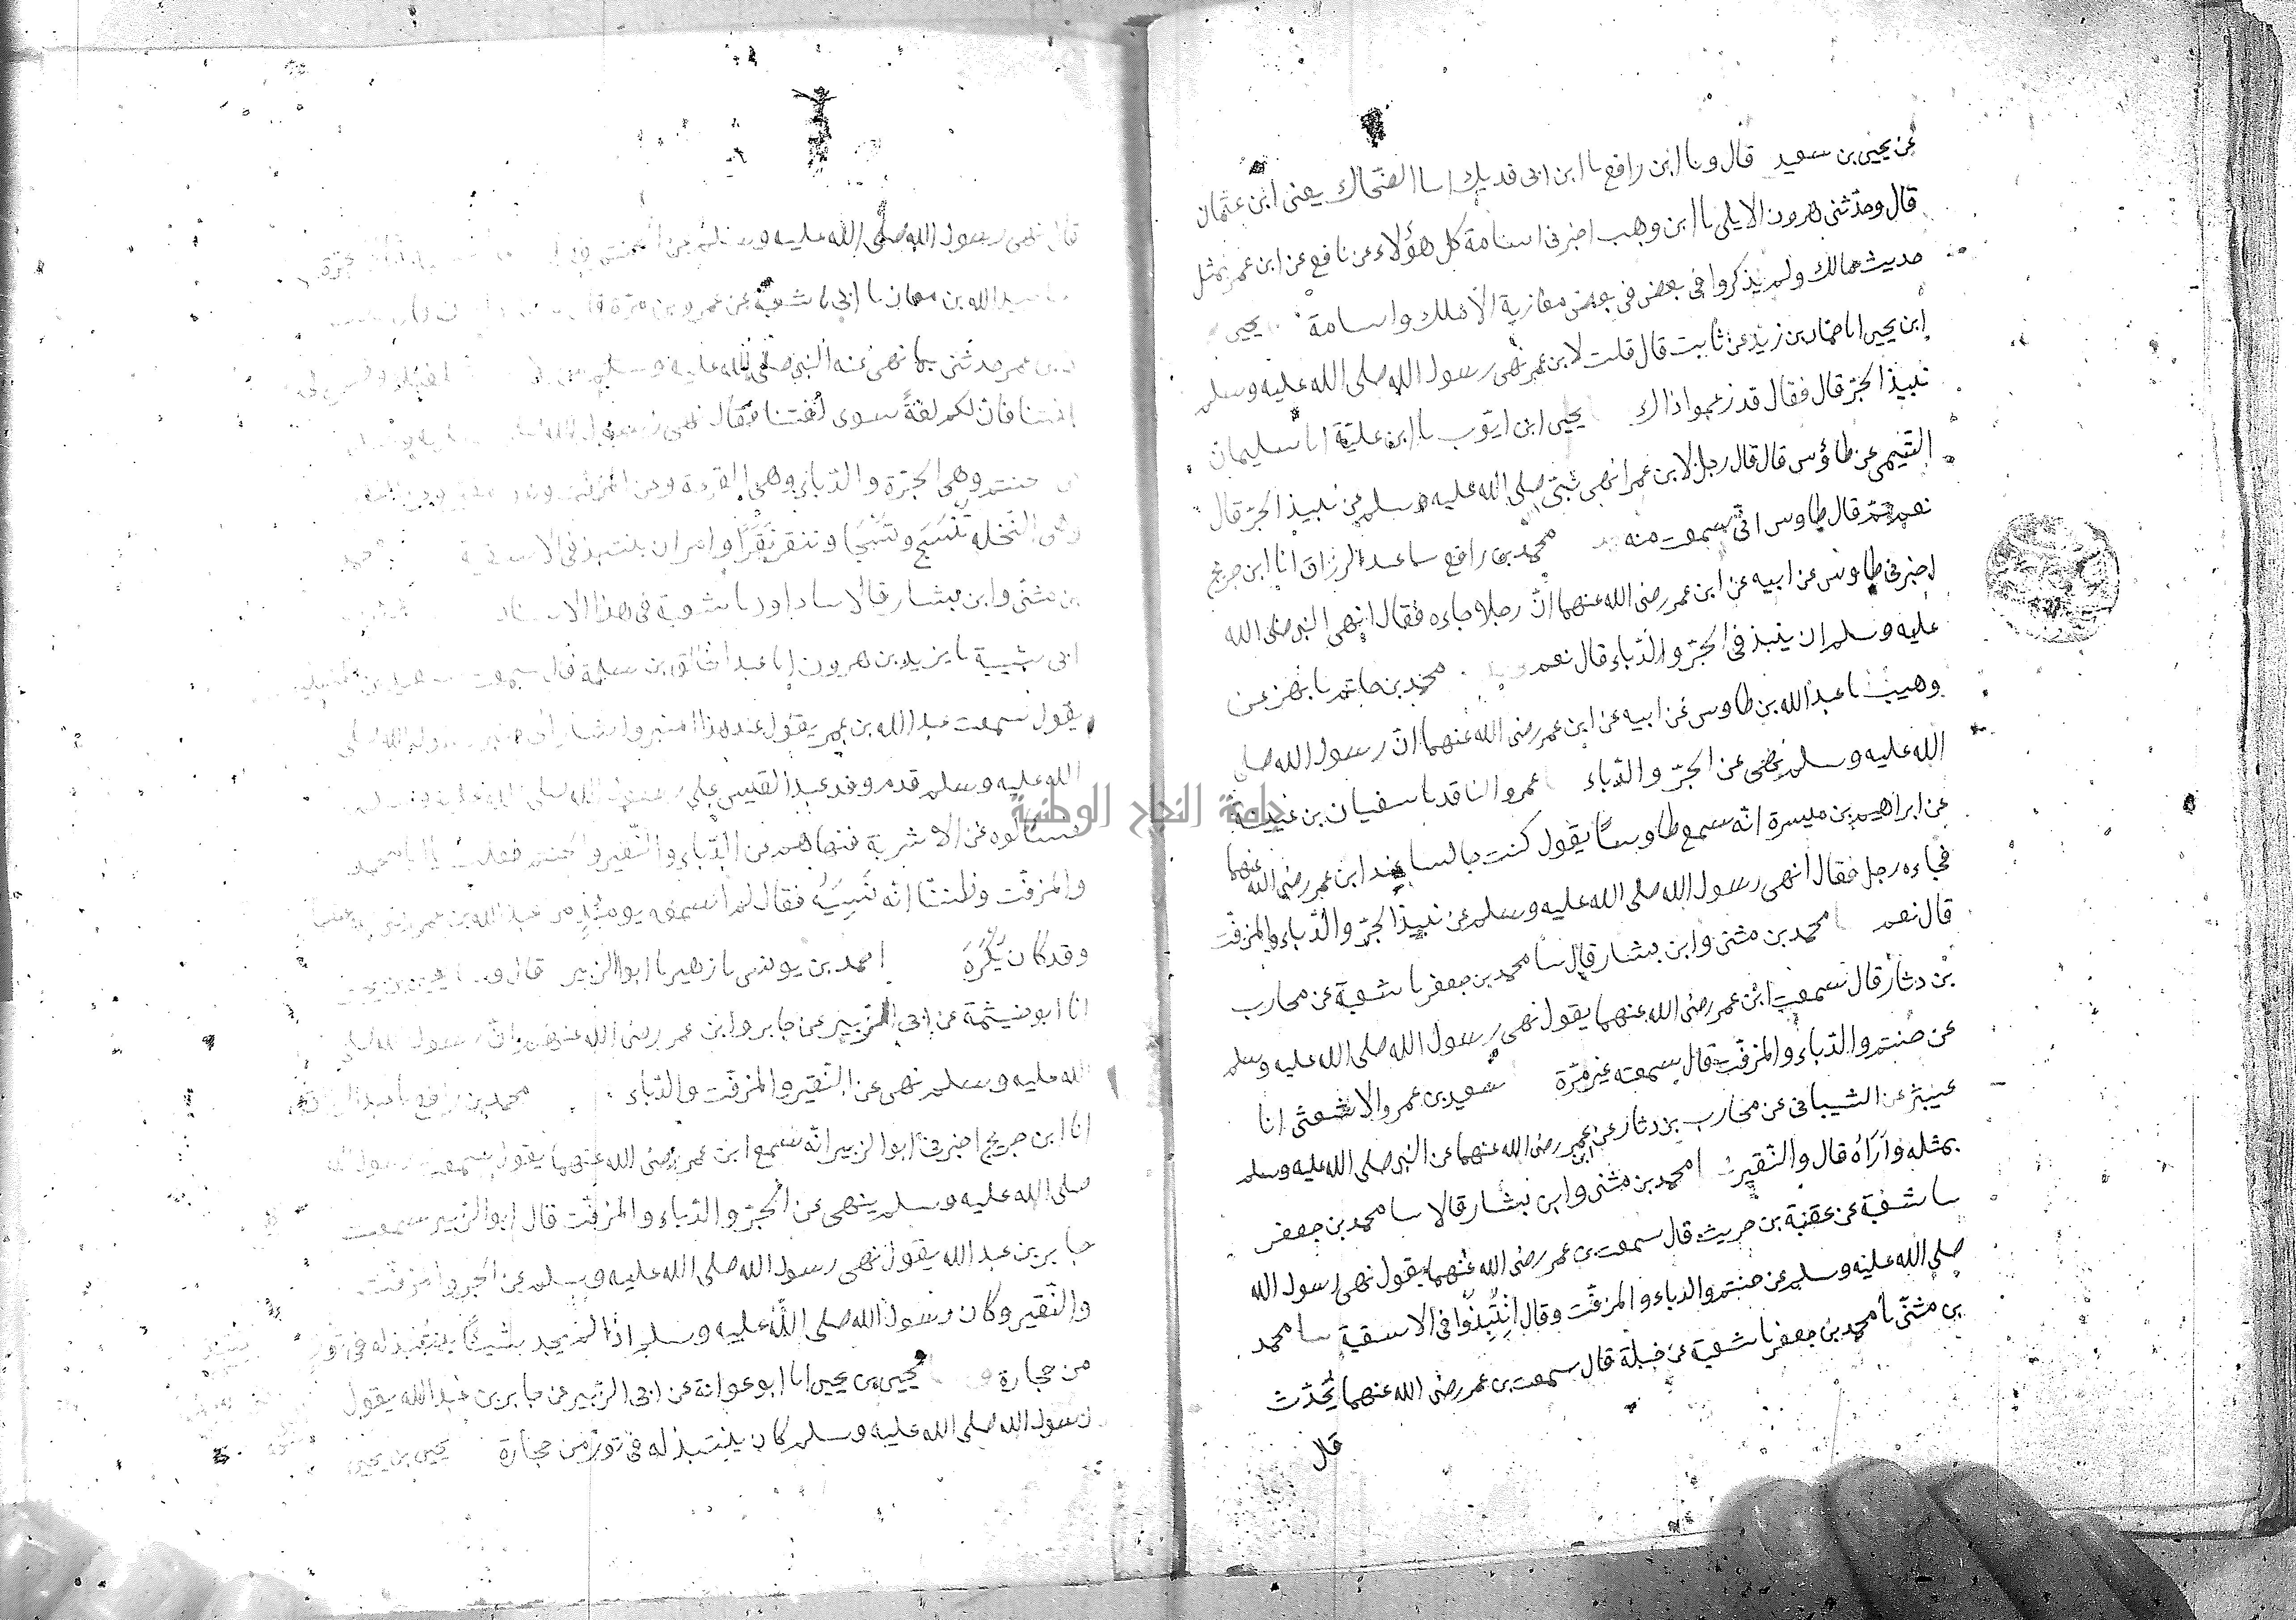 عن يحيى بن سعيد قال ونا ابن رافع نا ابن ابى فديك انا الضحاك يعنى ابن عثمان
قال وحدثنى هرون الايلى نا ابن وهب اخبرنى اسامة كل هؤلاء عن نافع عن ابن عمر بمثل
حديث مالك ولم يذكروا فى بعض فى بعض مغازيه الا ملك واسامة يحيى
ابن يحيى انا حماد بن زيد عن ثابت قال قلت لابن عمر نهى رسول الله صلى الله عليه وسلم
نبيذ الجرّ قال فقال قد زعموا ذاك يحيى ابن ايّوب نا ابن عليّة انا سليمان
التيمى عن طاؤس قال قال رجل لابن عمر انهى نبىّ صلى الله عليه وسلم عن نبيذ الجرّ قال
نعم ثمّ قال طاوس انىّ سمعت منه محمد بن رافع سا عبد الرزاق انا ابن جريج
اخبرنى طاوس عن ابيه عن ابن عمر رضى الله عنهما انّ رجلا جاءه فقال انهى النبى صلى الله
عليه وسلم ان ينبذ فى الجرّ والدّباء قال نعم محمد بن حاتم نا بهز عن
وهيب نا عبد الله بن طاوس عن ابيه عن ابن عمر رضى الله عنهما انّ رسول الله صلى
الله عليه وسلم نهى عن الجرّ والدّباء عمرو الناقد نا سفيان بن عيينة
عن ابراهيم بن ميسرة انه سمع طاوسًا يقول كنت جالسا عند ابن عمر رضى الله عنهما
فجاءه رجل فقال انهى رسول الله صلى الله عليه وسلم عن نبيذ الجرّ والدّباء والمزفّت
قال نعم محمد بن مثنى وابن بشار قال سا محمد بن جعفر نا شعبة عن محارب
بن دثار قال سمعت ابن عمر رضى الله عنهما يقول نهى رسول الله صلى الله عليه وسلم
عن حنتم والدّباء والمزفّت قال سمعته غير مرّة سعيد بن عمرو الاشعثى انا
عبثر عن الشيبانى عن محارب بن دثار عن ابن عمر رضى الله عنهما عن النبى صلى الله عليه وسلم
بمثله وأراه قال والنّقير محمد بن مثنى وابن بشار قالا سا محمد بن جعفر
سا شعبة عن عقبة بن حريث قال سمعت بن عمر رضى الله عنهما يقول نهى رسول الله
صلى الله عليه وسلم عن حنتم والدباء والمزفّت وقال انتبذوا فى الاسقية سا محمد
بن مثنّى نا محمد بن جعفر نا شعبة عن جبلة قال سمعت بن عمر رضى الله عنهما يُحدّث
قال
قال نهى رسول الله صلى الله عليه وسلم عن
الله بن معاذ نا ابى نا شعبة عن عمرو بن مرّة
بن عمر حدثنى بما نهى عنه النبى صلى الله عليه وسلم
فانّ لكم لغةً سوى لغتنا فقال نهى رسول الله
حنتم وهى الجرّة والدّباء وهى القرعة وعن المزفّت
وهى النّخلة تُنسَج وتنقر نَقرًا وامر ان ينتبذ فى الاسقية
بن مثنّى وابن بشار قالا سا داود نا شعبة فى هذا الاسناد
ابى شيبة نا يزيد بن هرون انا عبد الخالق بن سلمة قال سمعت سعيد بن
يقول سمعت عبد الله بن عمر يقول عند هذا المنبر واشار الى منبر رسول الله صلى
الله عليه وسلم قدم وفد عبد القيس على رسول الله صلى الله عليه وسلم
فسألوه عن الاشربة فنهاهم عن الدّباء والنّقير والحنتم فقلت يا ابا محمد
والمزفّت وظننّا انّه نسيه فقال لم اسمعه يومئذٍ من عبد الله بن عمر
وقد كان يكره احمد بن يونس نا زهير نا ابو الزبير قال
انا ابو خيثمة عن ابى الزّبير عن جابر وابن عمر رضى الله عنهم انّ رسول الله صلى
الله عليه وسلم نهى عن النّقير والمزفّت والدّباء محمد بن رافع نا عبد الرزاق
انا ابن جريج اخبرنى ابو الزبير انّه سمع ابن عمر رضى الله عنهما يقول سمعت رسول الله
صلى الله عليه وسلم ينهى عن الجرّ والدّباء والمزفّت قال ابو الزبير سمعت
جابر بن عبد الله يقول نهى رسول الله صلى الله عليه وسلم عن الجر والمزفّت
والنّقير وكان رسول الله صلى الله عليه وسلم اذا لم يجد شيئًا ينتبذ له فى تور
من حجارة يحيى بن يحيى انا ابو عوانة عن ابى الزّبير عن جابر بن عبد الله يقول
رسول الله صلى الله عليه وسلم كان ينتبذ له فى تور من حجارة يحيى بن يحيى
جامعة النجاح الوطنية